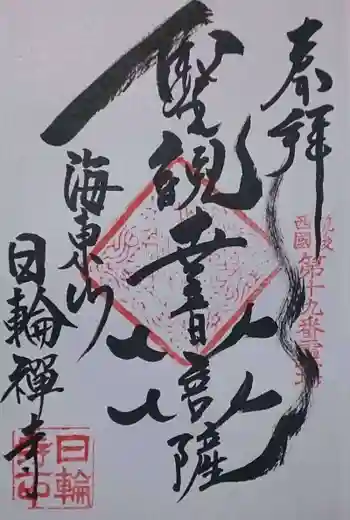 奉拝
西國
第十九番霊場
聖観世音菩薩
海東山
日輪禅寺
日輪
寺印